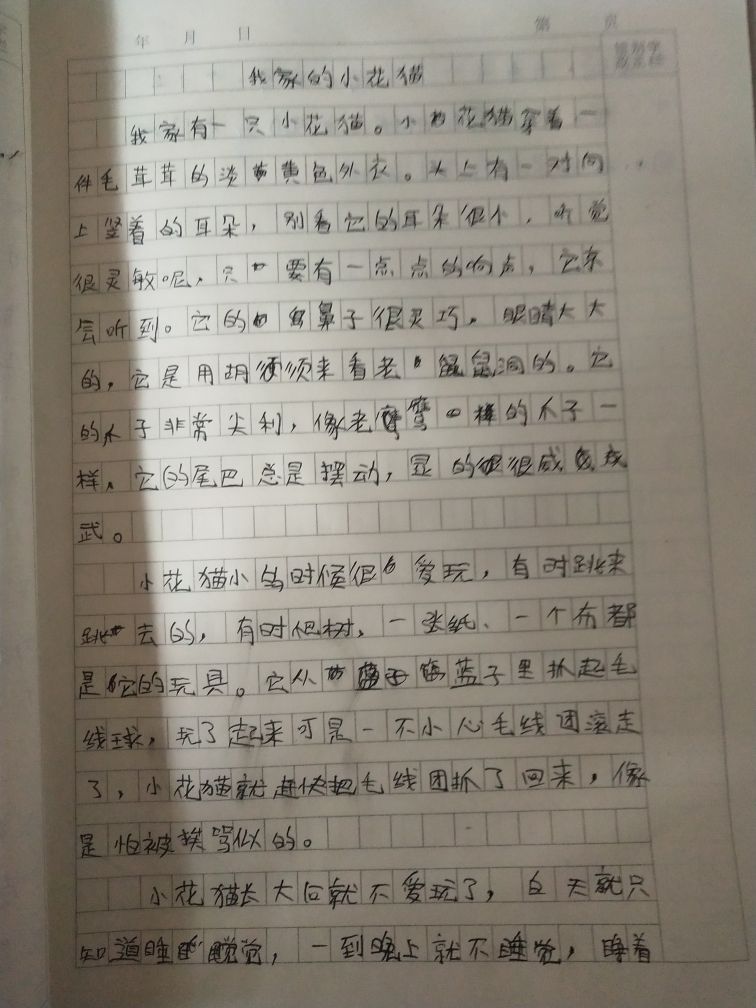 年 月 日 第 页
我家的小花猫
我家有一只小花猫。小花猫穿着一
件毛茸茸的淡黄色外衣。头上有一对向
上竖着的耳朵，别看它的耳朵很小，听觉
很灵敏呢，只要有一点点的响声，它东
会听到。它的鼻子很灵巧，眼睛大大
的，它是用胡须来看老鼠洞的。它
的爪子非常尖利，像老鹰一样的爪子一
样。它的尾巴总是摆动，显的很威
武。
小花猫小的时候很爱玩，有时跳来
跳去的，有时爬树，一张纸、一个布都
是它的玩具。它从蓝子里抓起毛
线球，玩了起来可是一不小心毛线团滚走
了，小花猫就赶快把毛线团抓了回来，像
是怕被挨骂似的。
小花猫长大后就不爱玩了，白天就只
知道睡觉，一到晚上就不睡觉，睁着